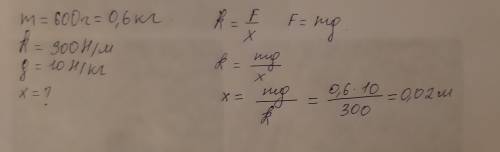 m = 600г = 0,6 кг
k = 300 Н/м
g = 10 Н/кг
x = ?
k = F/x F = mg
k = mg/x
x = mg/k = 0,6·10/300 = 0,02 м